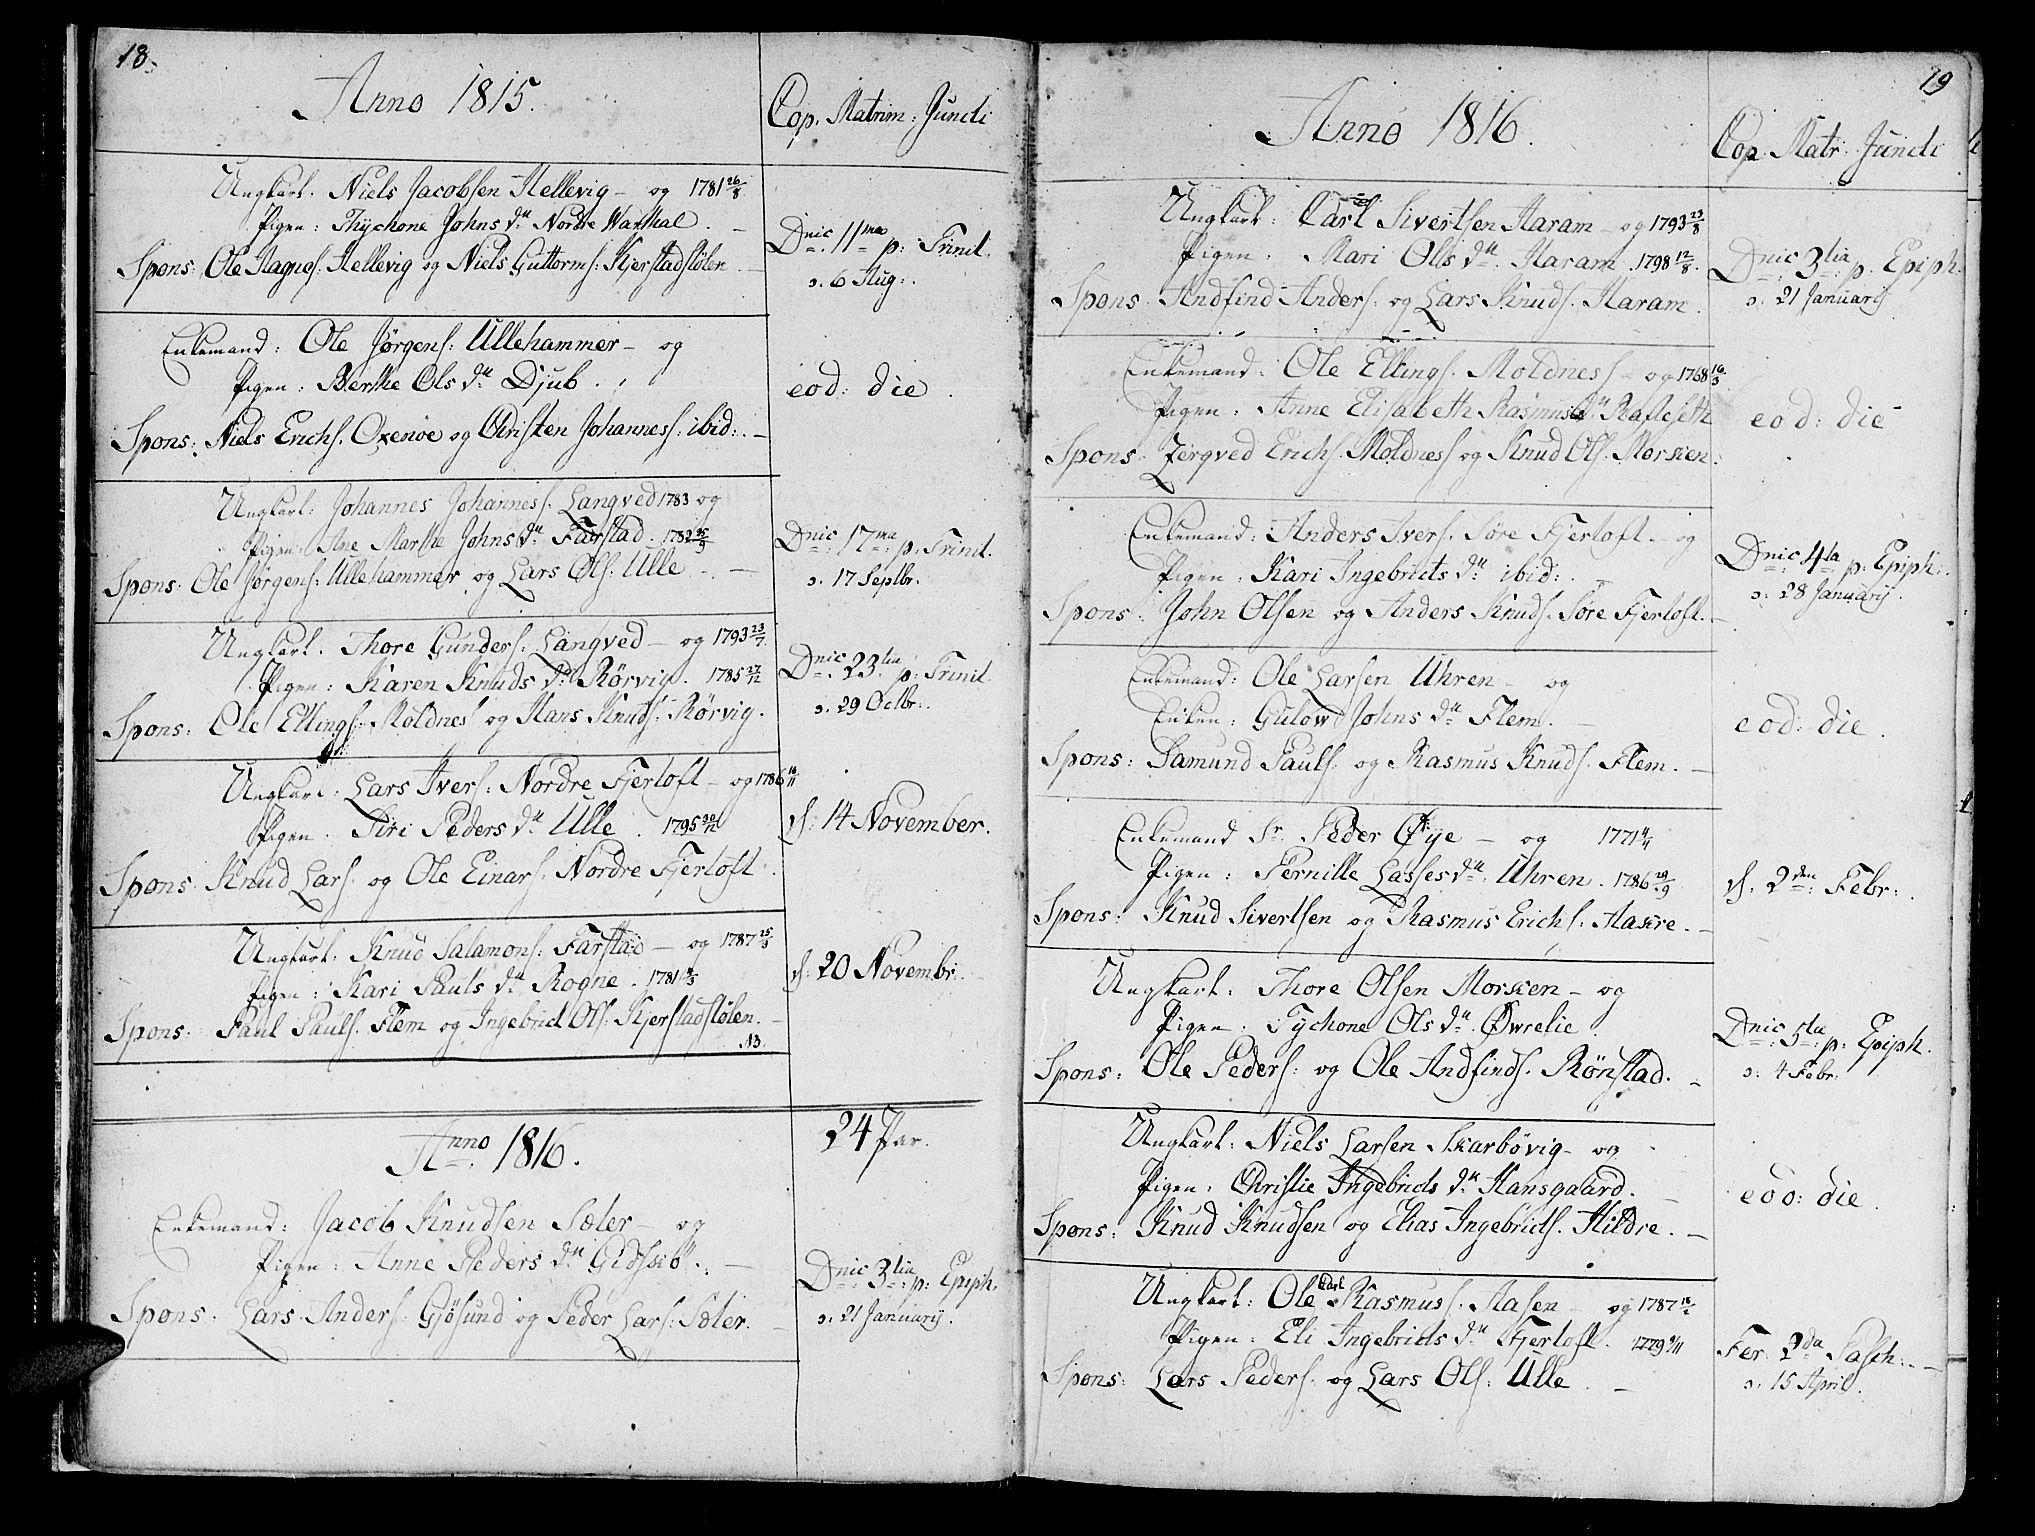 18.
Anno 1815.
Cop. Matrim: Juncti
Ungkarl. Niels Jacobsen Hellevig – og 1781 26/8
Pigen: Thychone Johns dtr Nordre Warhal. –
Spons: Ole Magnes: Hellevig og Niels Guttorms: Kjerstadstølen.
Dnic: 11ma p: Trinit.
ɔ: 6 Aug:.
Enkemand: Ole Jørgens: Ullehammer – og
Pigen: Berthe Ols dtr Djub.
Spons: Niels Erichs. Oxenøe og Christen Johanness: ibid:. –
eod: die.
Ungkarl: Johannes Johanness. Langved 1783 og
Pigen: Ane Marthe Johns dtr Farstad. 1782 25/9
Spons: Ole Jørgens: Ullehammer og Lars Ols: Ulle –
Dnic: 17ma p: Trinit.
ɔ. 17 Septbr.
Ungkarl. Thore Gunders. Langved – og 1793 23/7
Pigen: Karen Knuds dtr Rørvig. 1785 27/12
Spons: Ole Ellings. Moldnes og Hans Knuds: Rørvig.
Dnic: 23tia p: Trinit.
ɔ. 29 Octbr:.
Ungkarl: Lars Ivers: Nordre Fjertoft – og 1786 16/11
Pigen. Siri Peders dtr Ulle. 1795 30/12
Spons: Knud Lars. og Ole Einars. Nordre Fjertoft.
d. 14 November.
Ungkarl: Knud Salamons. Farstad – og 1787 25/3
Pigen: Kari Pauls dtr Rogne. 1781 18/3
Spons: Paul Pauls. Flem og Ingebrict Ols. Kjerstadstølen. –
13.
d. 20 Novembr:
24 Par.
Anno 1816.
Enkemand: Jacob Knudsen Sæter – og
Pigen: Anne Peders dtr Gidskø. –
Spons: Lars Anders. Gjøsund og Peder Lars: Sæter. –
Dnic: 3tia: p: Epiph.
ɔ. 21 Januarij.
19
Anno 1816.
Cop. Matr: Juncti
Ungkarl: Carl Sivertsen Haram – og 1793 23/8
Pigen: Mari Ols dtr. Haram. 1798 12/8.
Spons: Andfind Anders: og Lars Knuds. Haram.
Dnic: 3tia p: Epiph.
ɔ: 21 Januarij
Enkemand: Ole Ellings. Moldness – og 1768 16/3
Pigen: Anne Elisabeth Rasmus dtr Rafteseth
Spons: Zerqved Erichs. Moldness og Knud Ols. Morsken.
eod: die
Enkemand: Anders Ivers. Søre Fjertoft. – og
Pigen: Kari Ingebricts dtr ibid:.
Spons: John Olsen og Anders Knuds. Søre Fjertoft. –
Dnic: 4ta p: Epiph:.
ɔ: 28 Januarij.
Enkemand: Ole Larsen Uhren – og
Enken: Gulow Johns dtr Flem.
Spons: Samund Pauls. og Rasmus Knuds. Flem. –
eod: die.
Enkemand Sr. Peder Øye – og 1771 4/11
Pigen: Pernille Lasses dtr. Uhren. 1786 29/9
Spons: Knud Sivertsen og Rasmus Erichs: Aakre. –
d. 2den: Febr:.
Ungkarl: Thore Olsen Morsken – og
Pigen: Tychone Ols dtr Øwrelie.
Spons: Ole Peders: og Ole Andfinds. Rønstad. –
Dnic: 5ta: p: Epiph.
ɔ: 4 Febr:
Ungkarl: Niels Larsen Skarbøvig – og
Pigen: Christie Ingebricts dtr Hansgaard. –
Spons: Knud Knudsen og Elias Ingebricts. Hildre. –
eod: die.
Ungkarl: Ole Carl Rasmuss. Aasen og 1787 18/2
Pigen: Eli Ingebricts dtr Fjertoft. 1779 9/11
Spons: Lars Peders. og Lars Ols: Ulle. –
Fer: 2da Pasch:. –
ɔ: 15 April.